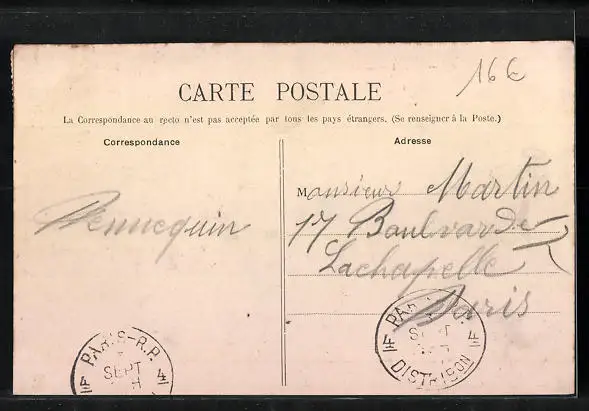 16 €
CARTE POSTALE
La Correspondance au recto n'est pas acceptée par tous les pays étrangers. (Se renseigner à la Poste.)
Correspondance
Adresse
Monsieur Martin
17 Boulvarde
Lachapelle
Paris
Hennequin
PARIS-R.P.
SEPT
4 4
DISTRIBON
PARIS-R.P.
SEPT
4 4